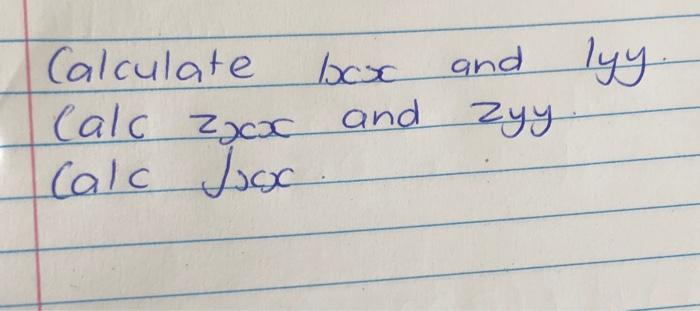 Calculate Ixx and Iyy.
Calc Zxx and Zyy.
Calc Jxx.